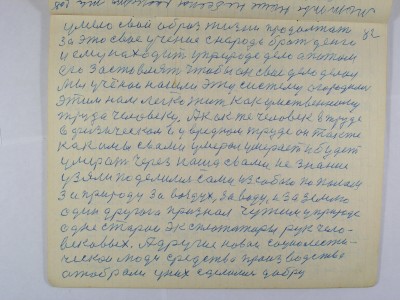 умело свой образ жизни продолжат
82
за это свое учение с народа брат денги
и ему находит у природе дело а потом
его заставлят чтобы он свое дело делал
Мы учёное нашли эту систему огородили
этим нам легко жит как умственному
труда человеку. А как же человек в труде
в физическом и у вредном труде он тоже
как и мы с вами умерал умерает и будет
умерат через наша с вами не знание
узяли поделилися сами из собою по
за природу за воздух, за воду, и за землю
одны другого признал чужим у природе
одне старое эксплотаторы рук чело-
вековых. А другие новое социолисти-
ческое люди средство производства
отобрали у них сделали добру